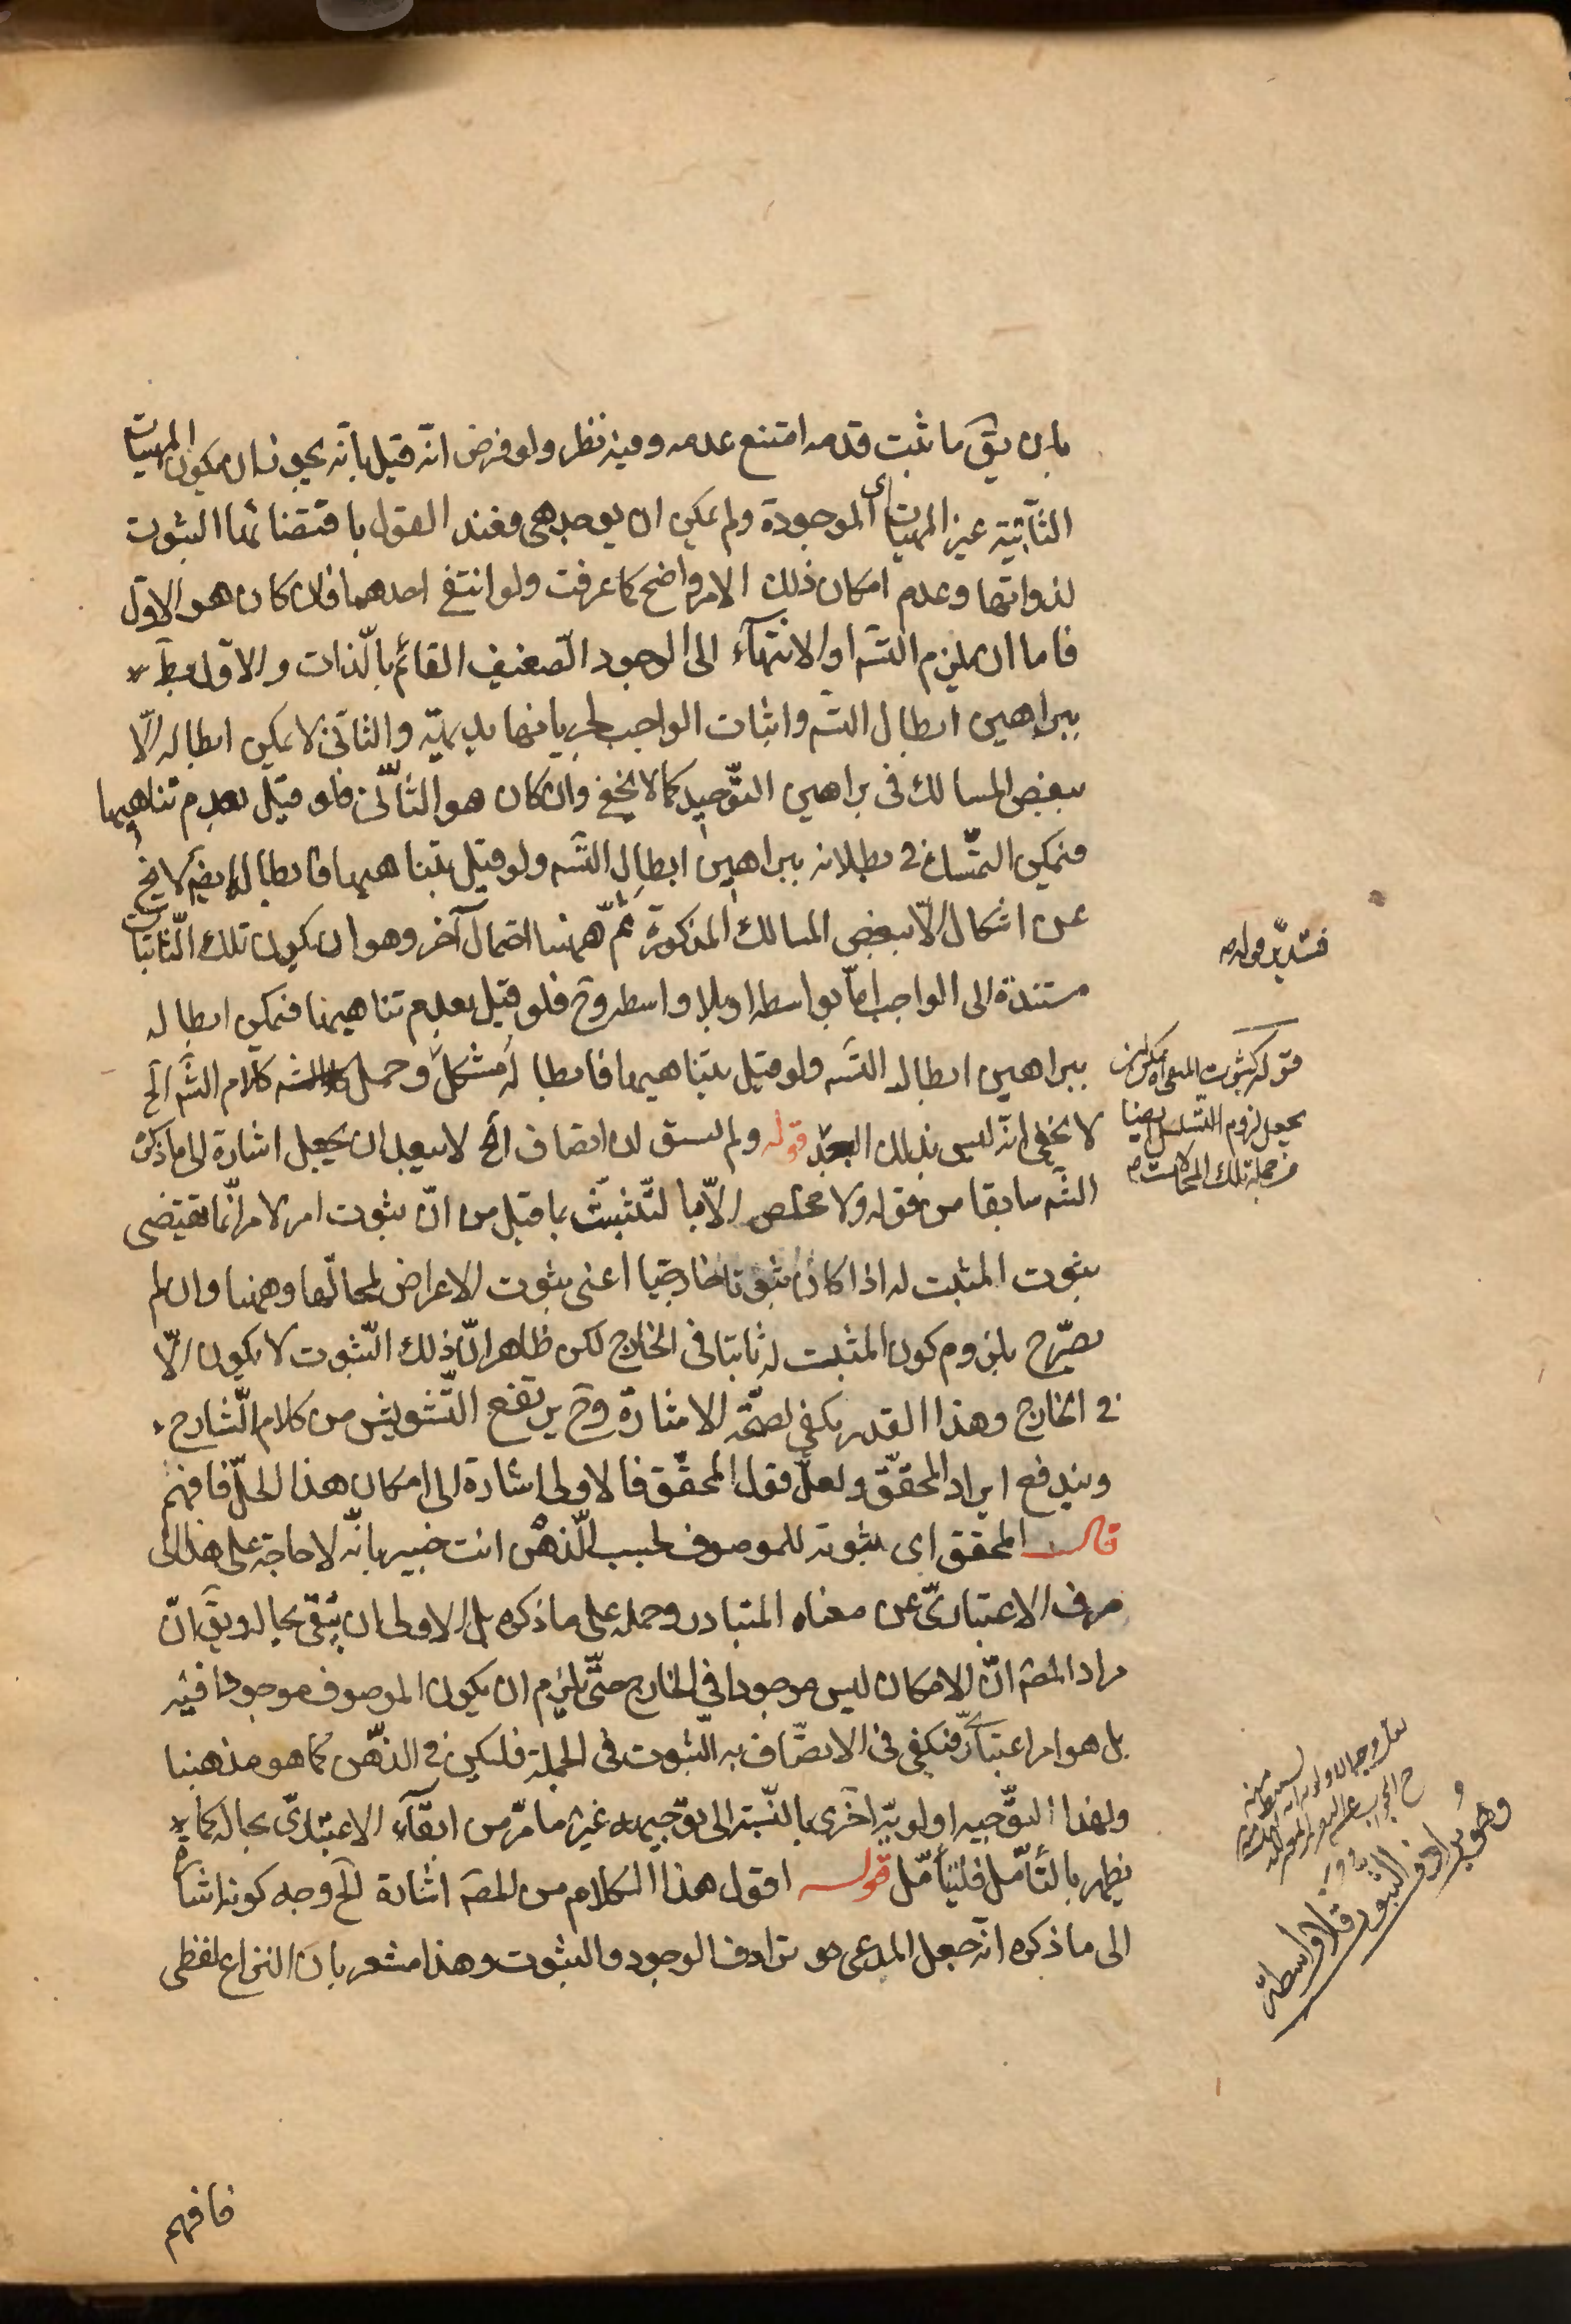 بان يقَ ما ثبت قدمه امتنع عدمه وفيه نظر ولو فرض انّه قيل بأنّه يجوز ان يكون المهيات
الثّابتة غير المهيات الموجودة ولم يمكن ان يوجد هى فعند القول باقتضائها الثبوت
لذواتها وعدم امكان ذلك الامر واضح كما عرفت ولو انتفى احدهما فان كان هو الاوّل
فاما ان يلزم التسَ او الانتهآء الى الوجود الضعيف القائم بالذّات والاوّل يبطَ
ببراهين ابطال التسَ واثبات الواجب لجريانها بديهيّة والثانى لا يمكن ابطاله الّا
ببعض المسالك فى براهين التّوحيد كما لا يخفى وان كان هو الثّانى فلو قيل بعدم تناهيها
فيمكن التمسّك فى بطلانه ببراهين ابطال التسَ ولو قيل بتناهيها فابطاله ايضَ لا يخ
عن اشكال الّا ببعض المسالك المذكورة ثمّ ههنا احتمال آخر وهو ان يكون تلك الثّابتات
مستندة الى الواجب امّا بواسطه او بلا واسطه وحَ فلو قيل بعدم تناهيها فيمكن ابطاله
ببراهين ابطال التسَ ولو قيل بتناهيها فابطاله مشكل وحمل كلام الشَ الخ
لا يخفى انّه ليس بذلك البعد قوله ولم يسبق ان اتصاف الخ لا يبعد ان يجعل اشارة الى ما ذكره
الشَ سابقا من قوله ولا مخلص الّا بالتّشبّث بما قيل من انّ ثبوت امر لامر انّما يقتضى
ثبوت المثبت له اذا كان ثبوتا خارجيا اعنى ثبوت الاعراض لمحالّها وههنا وان لم
يصرّح بلزوم كون المثبت له ثابتا فى الخارج لكن ظاهر انّ ذلك الثّبوت لا يكون الّا
فى الخارج وهذا القدر يكفى لصحّة الاشارة وحَ يرتفع التّشويش من كلام الشّارح
ويندفع ايراد المحقّق ولعلّ قول المحقّق فالاولى اشارة الى امكان هذا الحلّ فافهم
قال المحقق اى ثبوته للموصوف بحسب الذّهن انت خبير بانّه لا حاجة على هذا الى
صرف الاعتبارىّ عن معناه المتبادر وحمله على ما ذكره بل الاولى ان يبقى بحاله ويقَ انّ
مراد المصَ انّ الامكان ليس موجودا فى الخارج حتّى يلزم ان يكون الموصوف موجودا فيه
بل هو امر اعتبارىّ فيكفى فى الاتصّاف به الثّبوت فى الجملة فليكن فى الذهّن كما هو مذهبنا
ولهذا التوّجيه اولويّة اخرى بالنّسبة الى توجيهه غير ما مرّ من ابقآء الاعتبارىّ بحاله كما
يظهر بالتأمّل فليتأمّل قوله اقول هذا الكلام من المصَ اشارة الخ وجه كونه اشارة
الى ما ذكره انّه جعل المدعى هو ترادف الوجود والثبوت وهذا مشعر بان النزاع لفظى
فافهم
قوله كثبوت
يجعل لزوم التسلسل ايضا
من جملة تلك المحالات
وهو يرادف الثبوت فلا واسطة